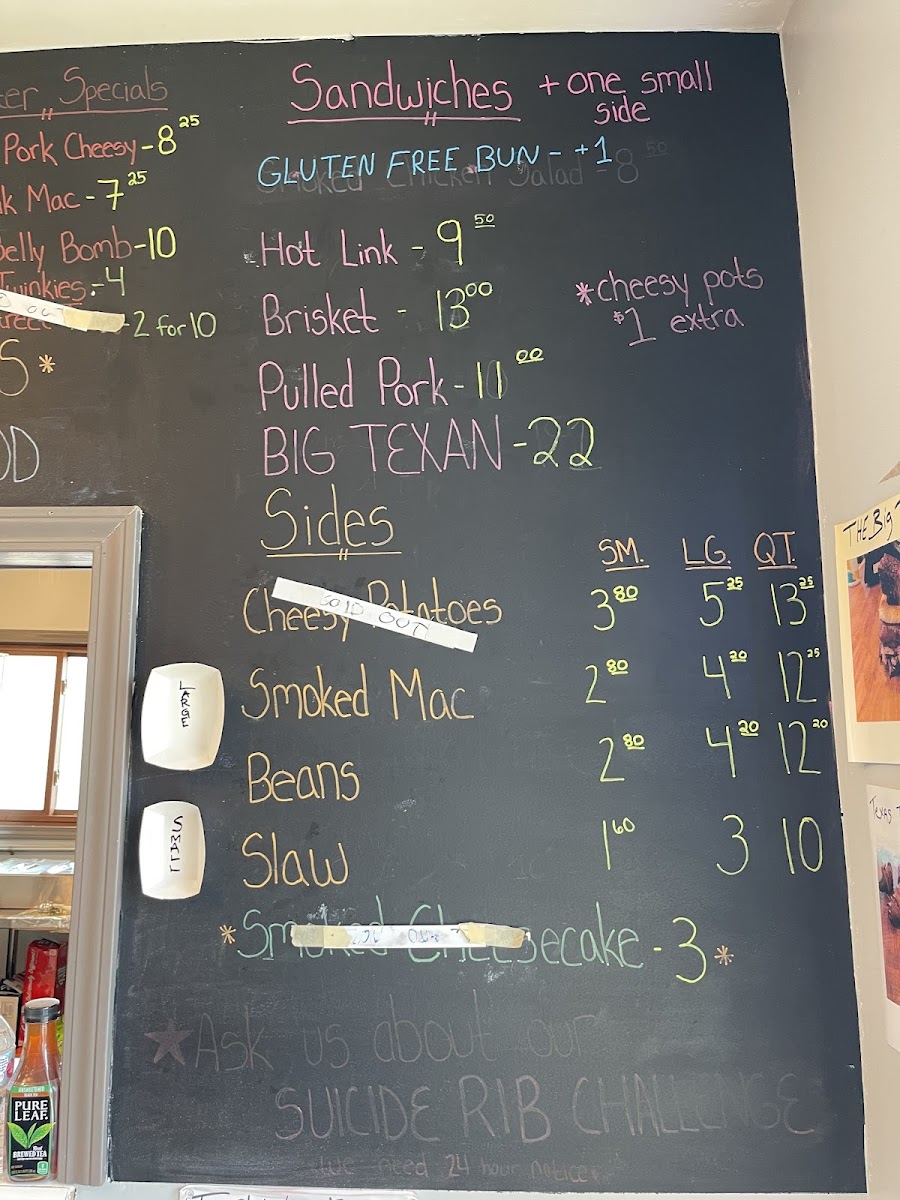 Specials
Pork Cheesy - 8 25
Mac - 7 25
Belly Bomb - 10
Twinkies - 4
- 2 for 10
S *
OD
Sandwiches + one small side
GLUTEN FREE BUN - +1
Smoked Chicken Salad - 8 50
Hot Link - 9 50
Brisket - 13 00
*cheesy pots
$1 extra
Pulled Pork - 11 00
BIG TEXAN - 22
Sides
SM. LG. QT.
Cheesy Potatoes 3 80 5 25 13 25
SOLD OUT
Smoked Mac 2 80 4 20 12 25
Beans 2 80 4 20 12 20
Slaw 1 60 3 10
*Smoked Cheesecake - 3*
★Ask us about our
SUICIDE RIB CHALLENGE
We need 24 hour notice
LARGE
SMALL
THE BIG T
TEXAS T
PURE
LEAF
BREWED TEA